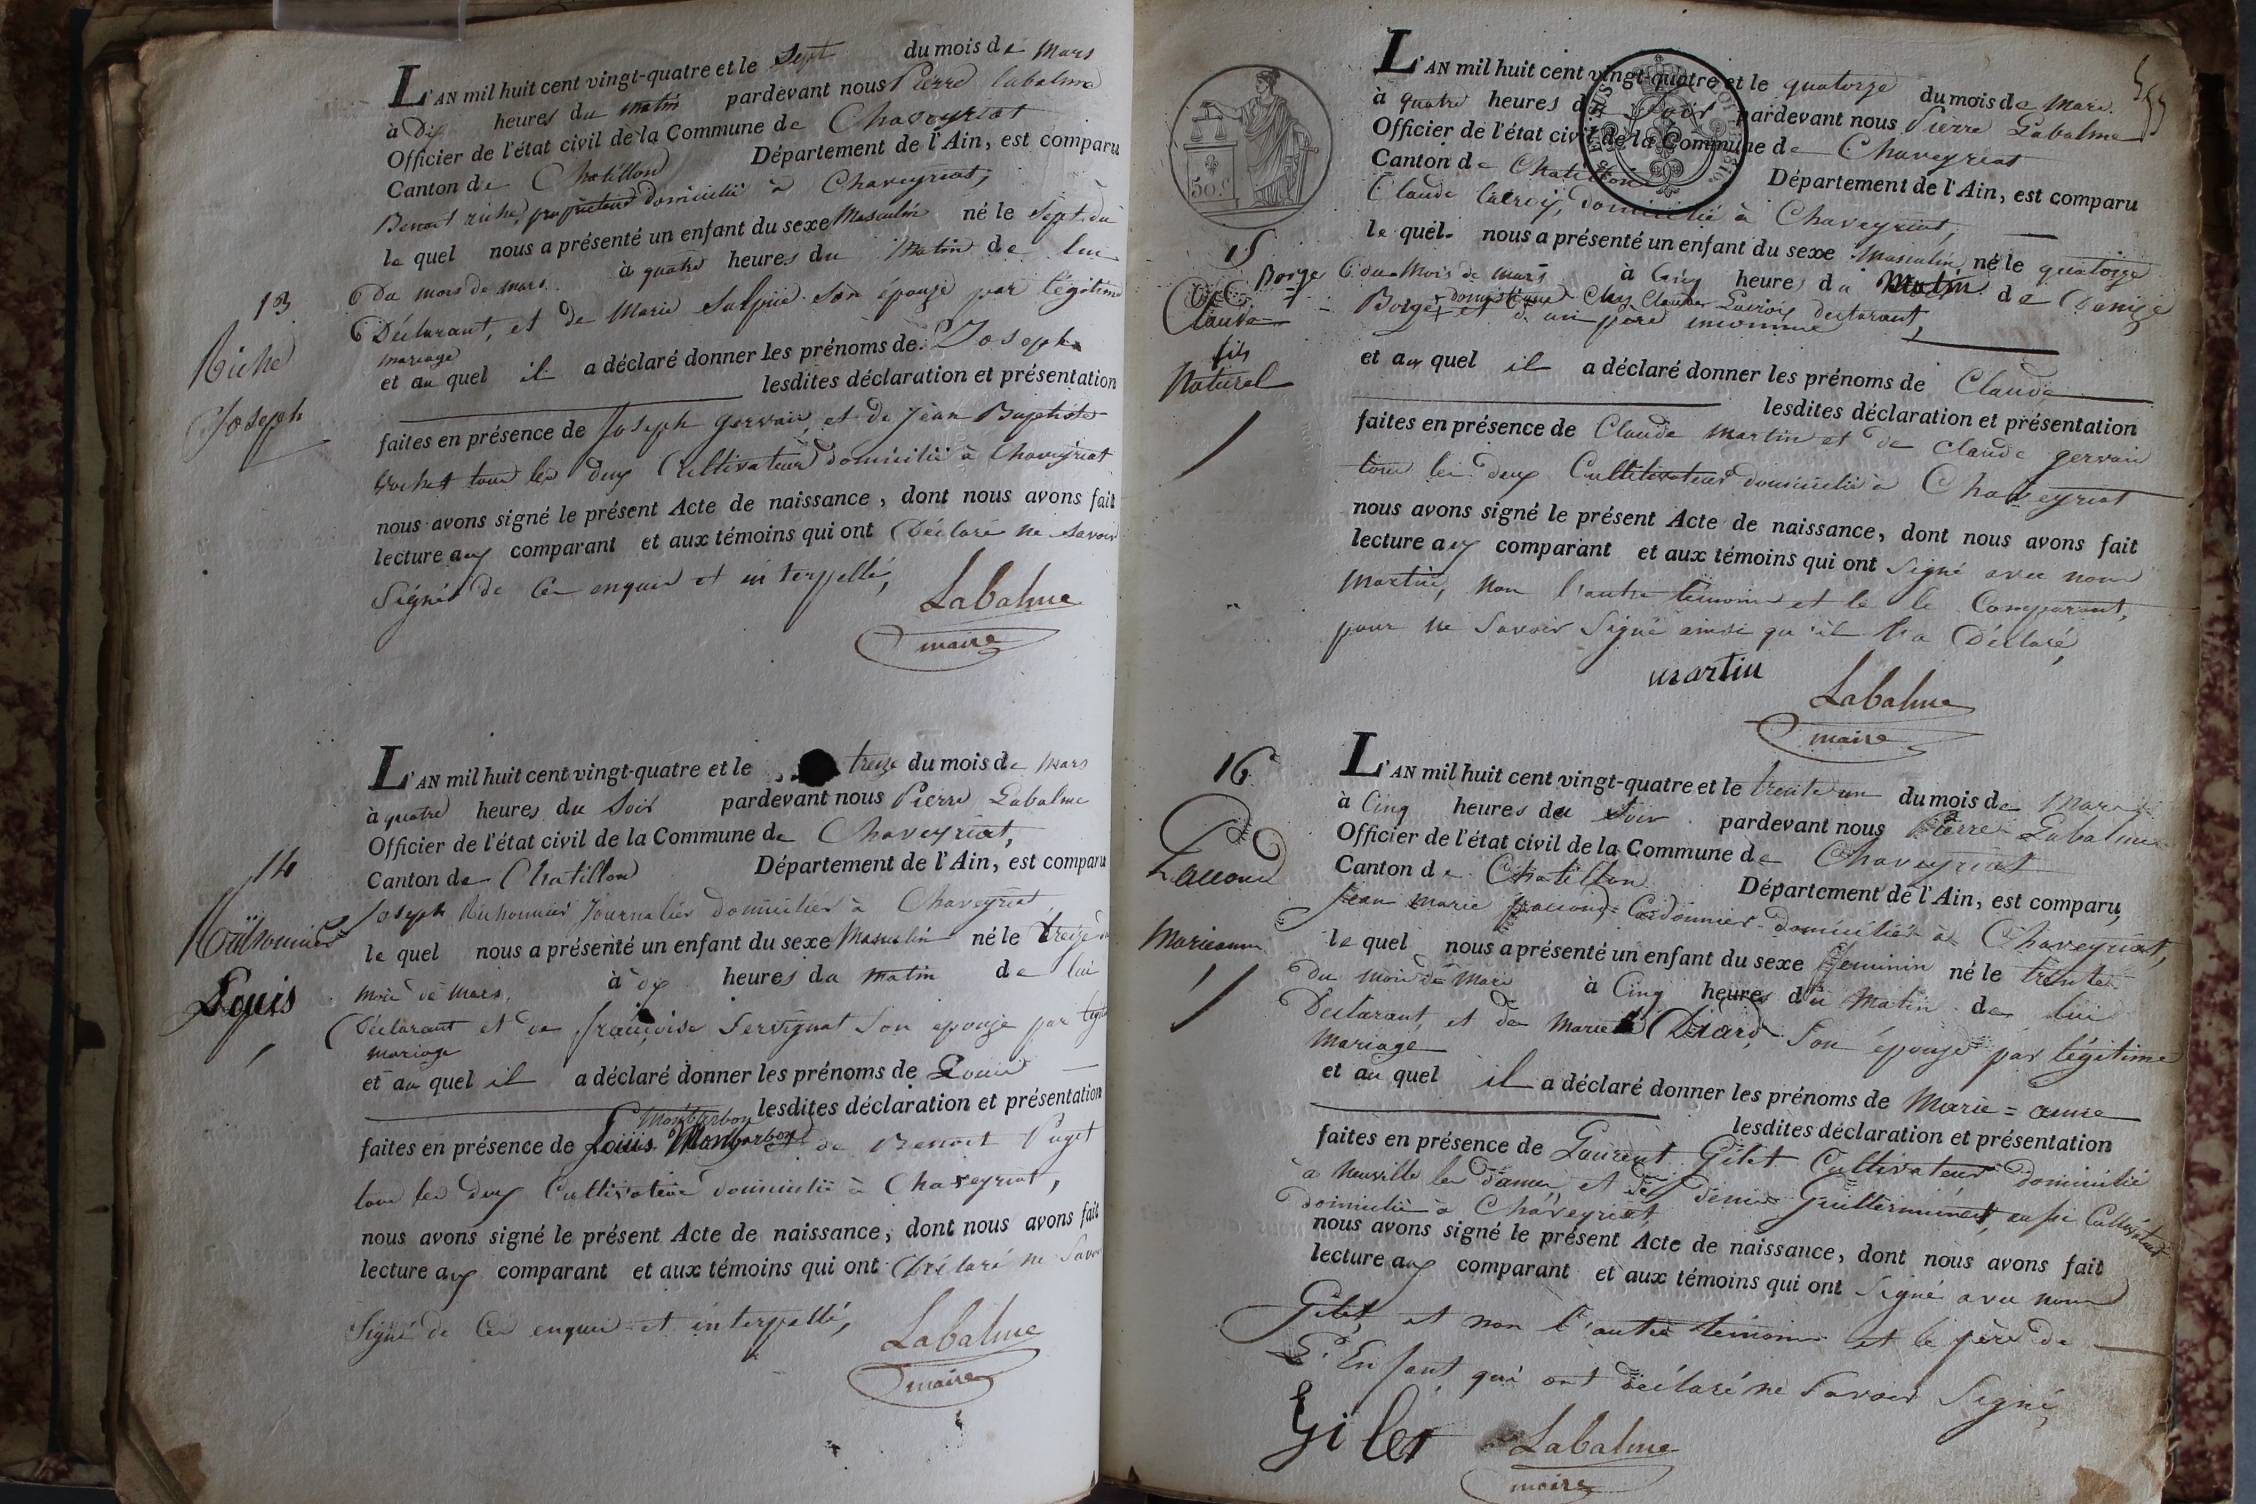 L'AN mil huit cent vingt-quatre et le Sept du mois de Mars
à Dix heures du matin pardevant nous Pierre Labalme
Officier de l'état civil de la Commune de Chaveyriat
Canton de Chatillon Département de l'Ain, est comparu
Benoit riche, propriétaire domicilié à Chaveyriat,
le quel nous a présenté un enfant du sexe Masculin né le Sept du
Du mois de mars à quatre heures du Matin de lui
13
Déclarant, et de Marie Sulpice Son épouse par légitime
mariage
Riche
et au quel il a déclaré donner les prénoms de Joseph
lesdites déclaration et présentation
Joseph
faites en présence de Joseph gervais, et de Jean Baptiste
tous les deux Cultivateurs domicilié à Chaveyriat
nous avons signé le présent Acte de naissance, dont nous avons fait
lecture aux comparant et aux témoins qui ont Déclaré ne Savoir
Signé de Ce enquis et interpellé,
Labalme
maire
L'AN mil huit cent vingt-quatre et le treize du mois de Mars
à quatre heures du Soir pardevant nous Pierre Labalme
Officier de l'état civil de la Commune de Chaveyriat,
Canton de Chatillon Département de l'Ain, est comparu
14
Joseph Journalier domicilier à Chaveyriat,
le quel nous a présenté un enfant du sexe Masculin né le treize du
mois de Mars, à dix heures du matin de lui
Louis
Déclarant et de françoise Servignat Son epouse par legitime
mariage
et au quel il a déclaré donner les prénoms de Louis
lesdites déclaration et présentation
Montberbon
faites en présence de Louis Monbarbon et de Benoit Puget
tous les deux Cultivateur domicilié à Chaveyriat,
nous avons signé le présent Acte de naissance, dont nous avons fait
lecture aux comparant et aux témoins qui ont Déclaré ne Savoir
Signé de Ce enquis et interpellé,
Labalme
maire
L'AN mil huit cent vingt-quatre et le quatorze du mois de Mars
à quatre heures du Soir pardevant nous Pierre Labalme
Officier de l'état civil de la Commune de Chaveyriat
Canton de Chatillon Département de l'Ain, est comparu
50 c
Claude Lacroix, domicilié à Chaveyriat,
le quel nous a présenté un enfant du sexe Masculin né le quatorze
15
Borge
du Mois de mars à Cinq heures du Matin de Denise
Claude
Borge + domestique Chez Claude Lacroix déclarant,
+ et d'un père inconnu
fils
Naturel
et au quel il a déclaré donner les prénoms de Claude
lesdites déclaration et présentation
faites en présence de Claude Martin et de Claude gervais
tous les deux Cultitivateurs domicilié à Chaveyriat
nous avons signé le présent Acte de naissance, dont nous avons fait
lecture aux comparant et aux témoins qui ont Signé avec nous
Martin, Non l'autre témoins et le le Comparant,
pour ne Savoir Signé ainsi qu'il l'a Déclaré,
martin
Labalme
maire
16
L'AN mil huit cent vingt-quatre et le trente un du mois de Mars
à Cinq heures du Soir pardevant nous Pierre Labalme
Officier de l'état civil de la Commune de Chaveyriat
Canton de Chatillon Département de l'Ain, est comparu
Jean Marie Cordonnier domicilié à Chaveyriat,
Marieanne
le quel nous a présenté un enfant du sexe feminin né le trente
du mois de Mars à Cinq heures du Matin de lui
Déclarant, et de Marie Diard, Son épouse par légitime
Mariage
et au quel il a déclaré donner les prénoms de Marie = anne
lesdites déclaration et présentation
faites en présence de Laurent Gilet Cultivateur domicilié
à Neuville les dames et de Denis Guillerminet, aussi Cultivateur
domicilié à Chaveyriat,
nous avons signé le présent Acte de naissance, dont nous avons fait
lecture aux comparant et aux témoins qui ont Signé avec nous
Gilet, et non l'autre témoins et le père de
L'Enfant qui ont déclaré ne Savoir Signé,
Gilet
Labalme
maire